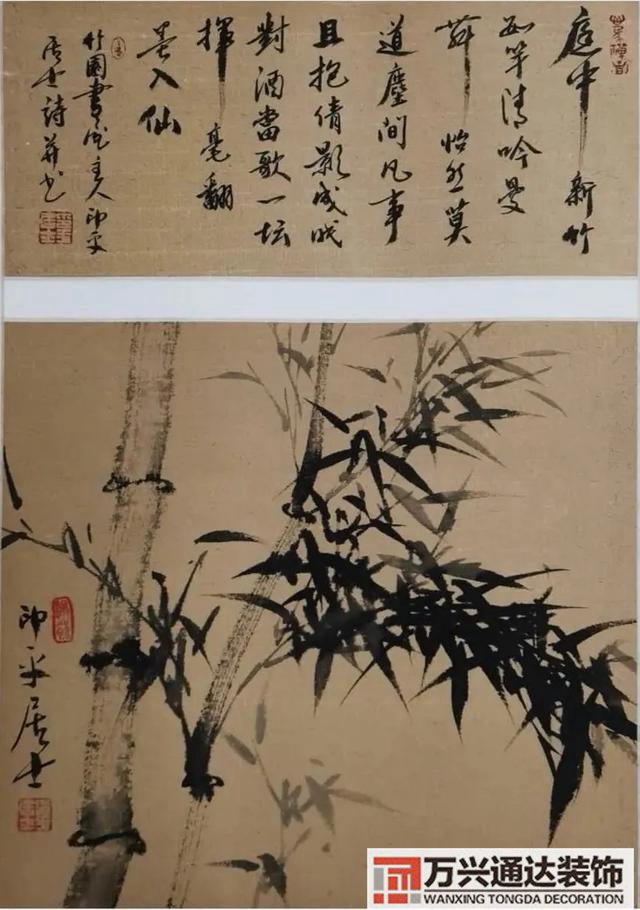 庭中新竹
竿清吟曼
舞怡然莫
道塵間凡事
且抱倩影成
對酒當歌一坛
揮毫翻
墨入仙
竹園書主人印平
居士詩并书
印平居士
万兴通达装饰
WANXING TONGDA DECORATION